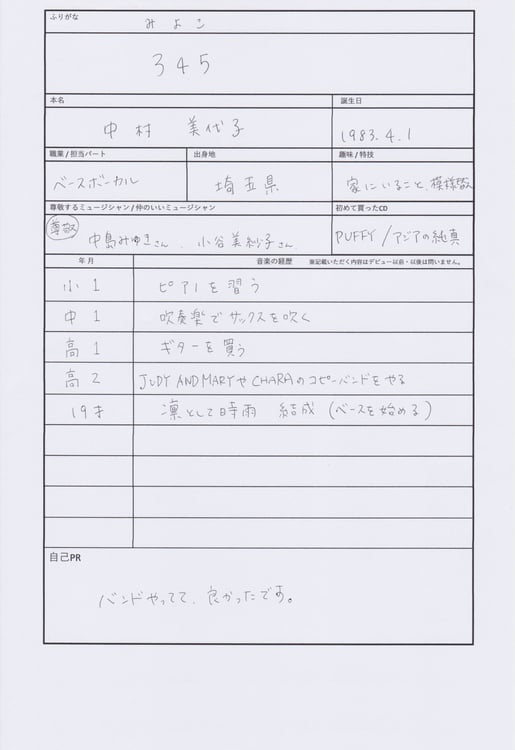 ふりがな
みよこ
345
本名
誕生日
中村 美代子
1983.4.1
職業/担当パート
出身地
趣味/特技
ベースボーカル
埼玉県
家にいること、模様替え
尊敬するミュージシャン/仲のいいミュージシャン
初めて買ったCD
尊敬
中島みゆきさん、小谷美紗子さん
PUFFY/アジアの純真
年月
音楽の経歴
※記載いただく内容はデビュー以前・以後は問いません。
小1
ピアノを習う
中1
吹奏楽でサックスを吹く
高1
ギターを買う
高2
JUDY AND MARYやCHARAのコピーバンドをやる
19才
凛として時雨 結成(ベースを始める)
自己PR
バンドやってて、良かったです。